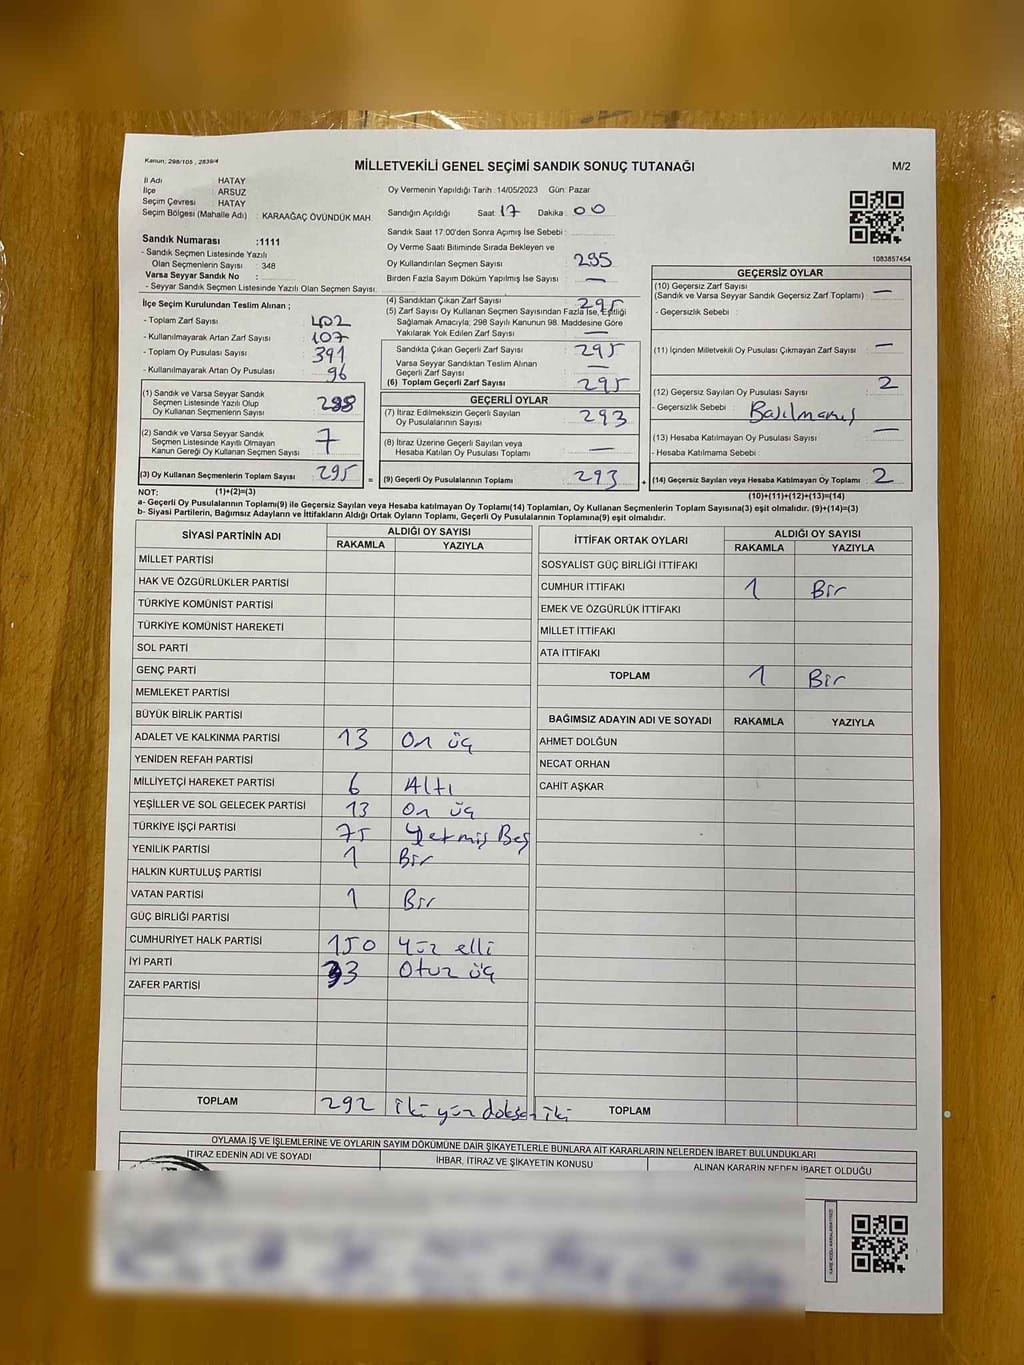 Kanun: 298/105 , 2839/4
MİLLETVEKİLİ GENEL SEÇİMİ SANDIK SONUÇ TUTANAĞI
M/2
İl Adı : HATAY
İlçe : ARSUZ
Seçim Çevresi : HATAY
Seçim Bölgesi (Mahalle Adı) : KARAAĞAÇ ÖVÜNDÜK MAH.
Oy Vermenin Yapıldığı Tarih :14/05/2023 Gün: Pazar
Sandığın Açıldığı Saat : 17 Dakika : 00
Sandık Saat 17:00'den Sonra Açımış İse Sebebi :
Oy Verme Saati Bitiminde Sırada Bekleyen ve
Oy Kullandırılan Seçmen Sayısı 295
Birden Fazla Sayım Döküm Yapılmış İse Sayısı : —
1083857454
Sandık Numarası :1111
- Sandık Seçmen Listesinde Yazılı
Olan Seçmenlerin Sayısı : 348
Varsa Seyyar Sandık No :
- Seyyar Sandık Seçmen Listesinde Yazılı Olan Seçmen Sayısı:
İlçe Seçim Kurulundan Teslim Alınan ;
- Toplam Zarf Sayısı : 402
- Kullanılmayarak Artan Zarf Sayısı : 107
- Toplam Oy Pusulası Sayısı : 391
- Kullanılmayarak Artan Oy Pusulası : 96
(1) Sandık ve Varsa Seyyar Sandık
Seçmen Listesinde Yazılı Olup
Oy Kullanan Seçmenlerin Sayısı : 288
(2) Sandık ve Varsa Seyyar Sandık
Seçmen Listesinde Kayıtlı Olmayan
Kanun Gereği Oy Kullanan Seçmen Sayısı : 7
(3) Oy Kullanan Seçmenlerin Toplam Sayısı : 295
(4) Sandıktan Çıkan Zarf Sayısı : 295
(5) Zarf Sayısı Oy Kullanan Seçmen Sayısından Fazla İse, Eşitliği
Sağlamak Amacıyla; 298 Sayılı Kanunun 98. Maddesine Göre
Yakılarak Yok Edilen Zarf Sayısı : —
Sandıkta Çıkan Geçerli Zarf Sayısı : 295
Varsa Seyyar Sandıktan Teslim Alınan
Geçerli Zarf Sayısı : —
(6) Toplam Geçerli Zarf Sayısı : 295
GEÇERLİ OYLAR
(7) İtiraz Edilmeksizin Geçerli Sayılan
Oy Pusulalarının Sayısı : 293
(8) İtiraz Üzerine Geçerli Sayılan veya
Hesaba Katılan Oy Pusulaları Toplamı : —
= (9) Geçerli Oy Pusulalarının Toplamı : 293
GEÇERSİZ OYLAR
(10) Geçersiz Zarf Sayısı
(Sandık ve Varsa Seyyar Sandık Geçersiz Zarf Toplamı) : —
- Geçersizlik Sebebi :
(11) İçinden Milletvekili Oy Pusulası Çıkmayan Zarf Sayısı : —
(12) Geçersiz Sayılan Oy Pusulası Sayısı : 2
- Geçersizlik Sebebi : Basılmamış
(13) Hesaba Katılmayan Oy Pusulası Sayısı : —
- Hesaba Katılmama Sebebi :
+ (14) Geçersiz Sayılan veya Hesaba Katılmayan Oy Toplamı : 2
NOT: (1)+(2)=(3)
(10)+(11)+(12)+(13)=(14)
a- Geçerli Oy Pusulalarının Toplamı(9) ile Geçersiz Sayılan veya Hesaba katılmayan Oy Toplamı(14) Toplamları, Oy Kullanan Seçmenlerin Toplam Sayısına(3) eşit olmalıdır. (9)+(14)=(3)
b- Siyasi Partilerin, Bağımsız Adayların ve İttifakların Aldığı Ortak Oyların Toplamı, Geçerli Oy Pusulalarının Toplamına(9) eşit olmalıdır.
SİYASİ PARTİNİN ADI ALDIĞI OY SAYISI
RAKAMLA YAZIYLA
MİLLET PARTİSİ
HAK VE ÖZGÜRLÜKLER PARTİSİ
TÜRKİYE KOMÜNİST PARTİSİ
TÜRKİYE KOMÜNİST HAREKETİ
SOL PARTİ
GENÇ PARTİ
MEMLEKET PARTİSİ
BÜYÜK BİRLİK PARTİSİ
ADALET VE KALKINMA PARTİSİ 13 On üç
YENİDEN REFAH PARTİSİ
MİLLİYETÇİ HAREKET PARTİSİ 6 Altı
YEŞİLLER VE SOL GELECEK PARTİSİ 13 On üç
TÜRKİYE İŞÇİ PARTİSİ 75 Yetmiş Beş
YENİLİK PARTİSİ 1 Bir
HALKIN KURTULUŞ PARTİSİ
VATAN PARTİSİ 1 Bir
GÜÇ BİRLİĞİ PARTİSİ
CUMHURİYET HALK PARTİSİ 150 Yüz elli
İYİ PARTİ 33 Otuz üç
ZAFER PARTİSİ
TOPLAM 292 iki yüz doksan iki
İTTİFAK ORTAK OYLARI ALDIĞI OY SAYISI
RAKAMLA YAZIYLA
SOSYALİST GÜÇ BİRLİĞİ İTTİFAKI
CUMHUR İTTİFAKI 1 Bir
EMEK VE ÖZGÜRLÜK İTTİFAKI
MİLLET İTTİFAKI
ATA İTTİFAKI
TOPLAM 1 Bir
BAĞIMSIZ ADAYIN ADI VE SOYADI RAKAMLA YAZIYLA
AHMET DOLĞUN
NECAT ORHAN
CAHİT AŞKAR
TOPLAM
OYLAMA İŞ VE İŞLEMLERİNE VE OYLARIN SAYIM DÖKÜMÜNE DAİR ŞİKAYETLERLE BUNLARA AİT KARARLARIN NELERDEN İBARET BULUNDUKLARI
İTİRAZ EDENİN ADI VE SOYADI İHBAR, İTİRAZ VE ŞİKAYETİN KONUSU ALINAN KARARIN NEDEN İBARET OLDUĞU